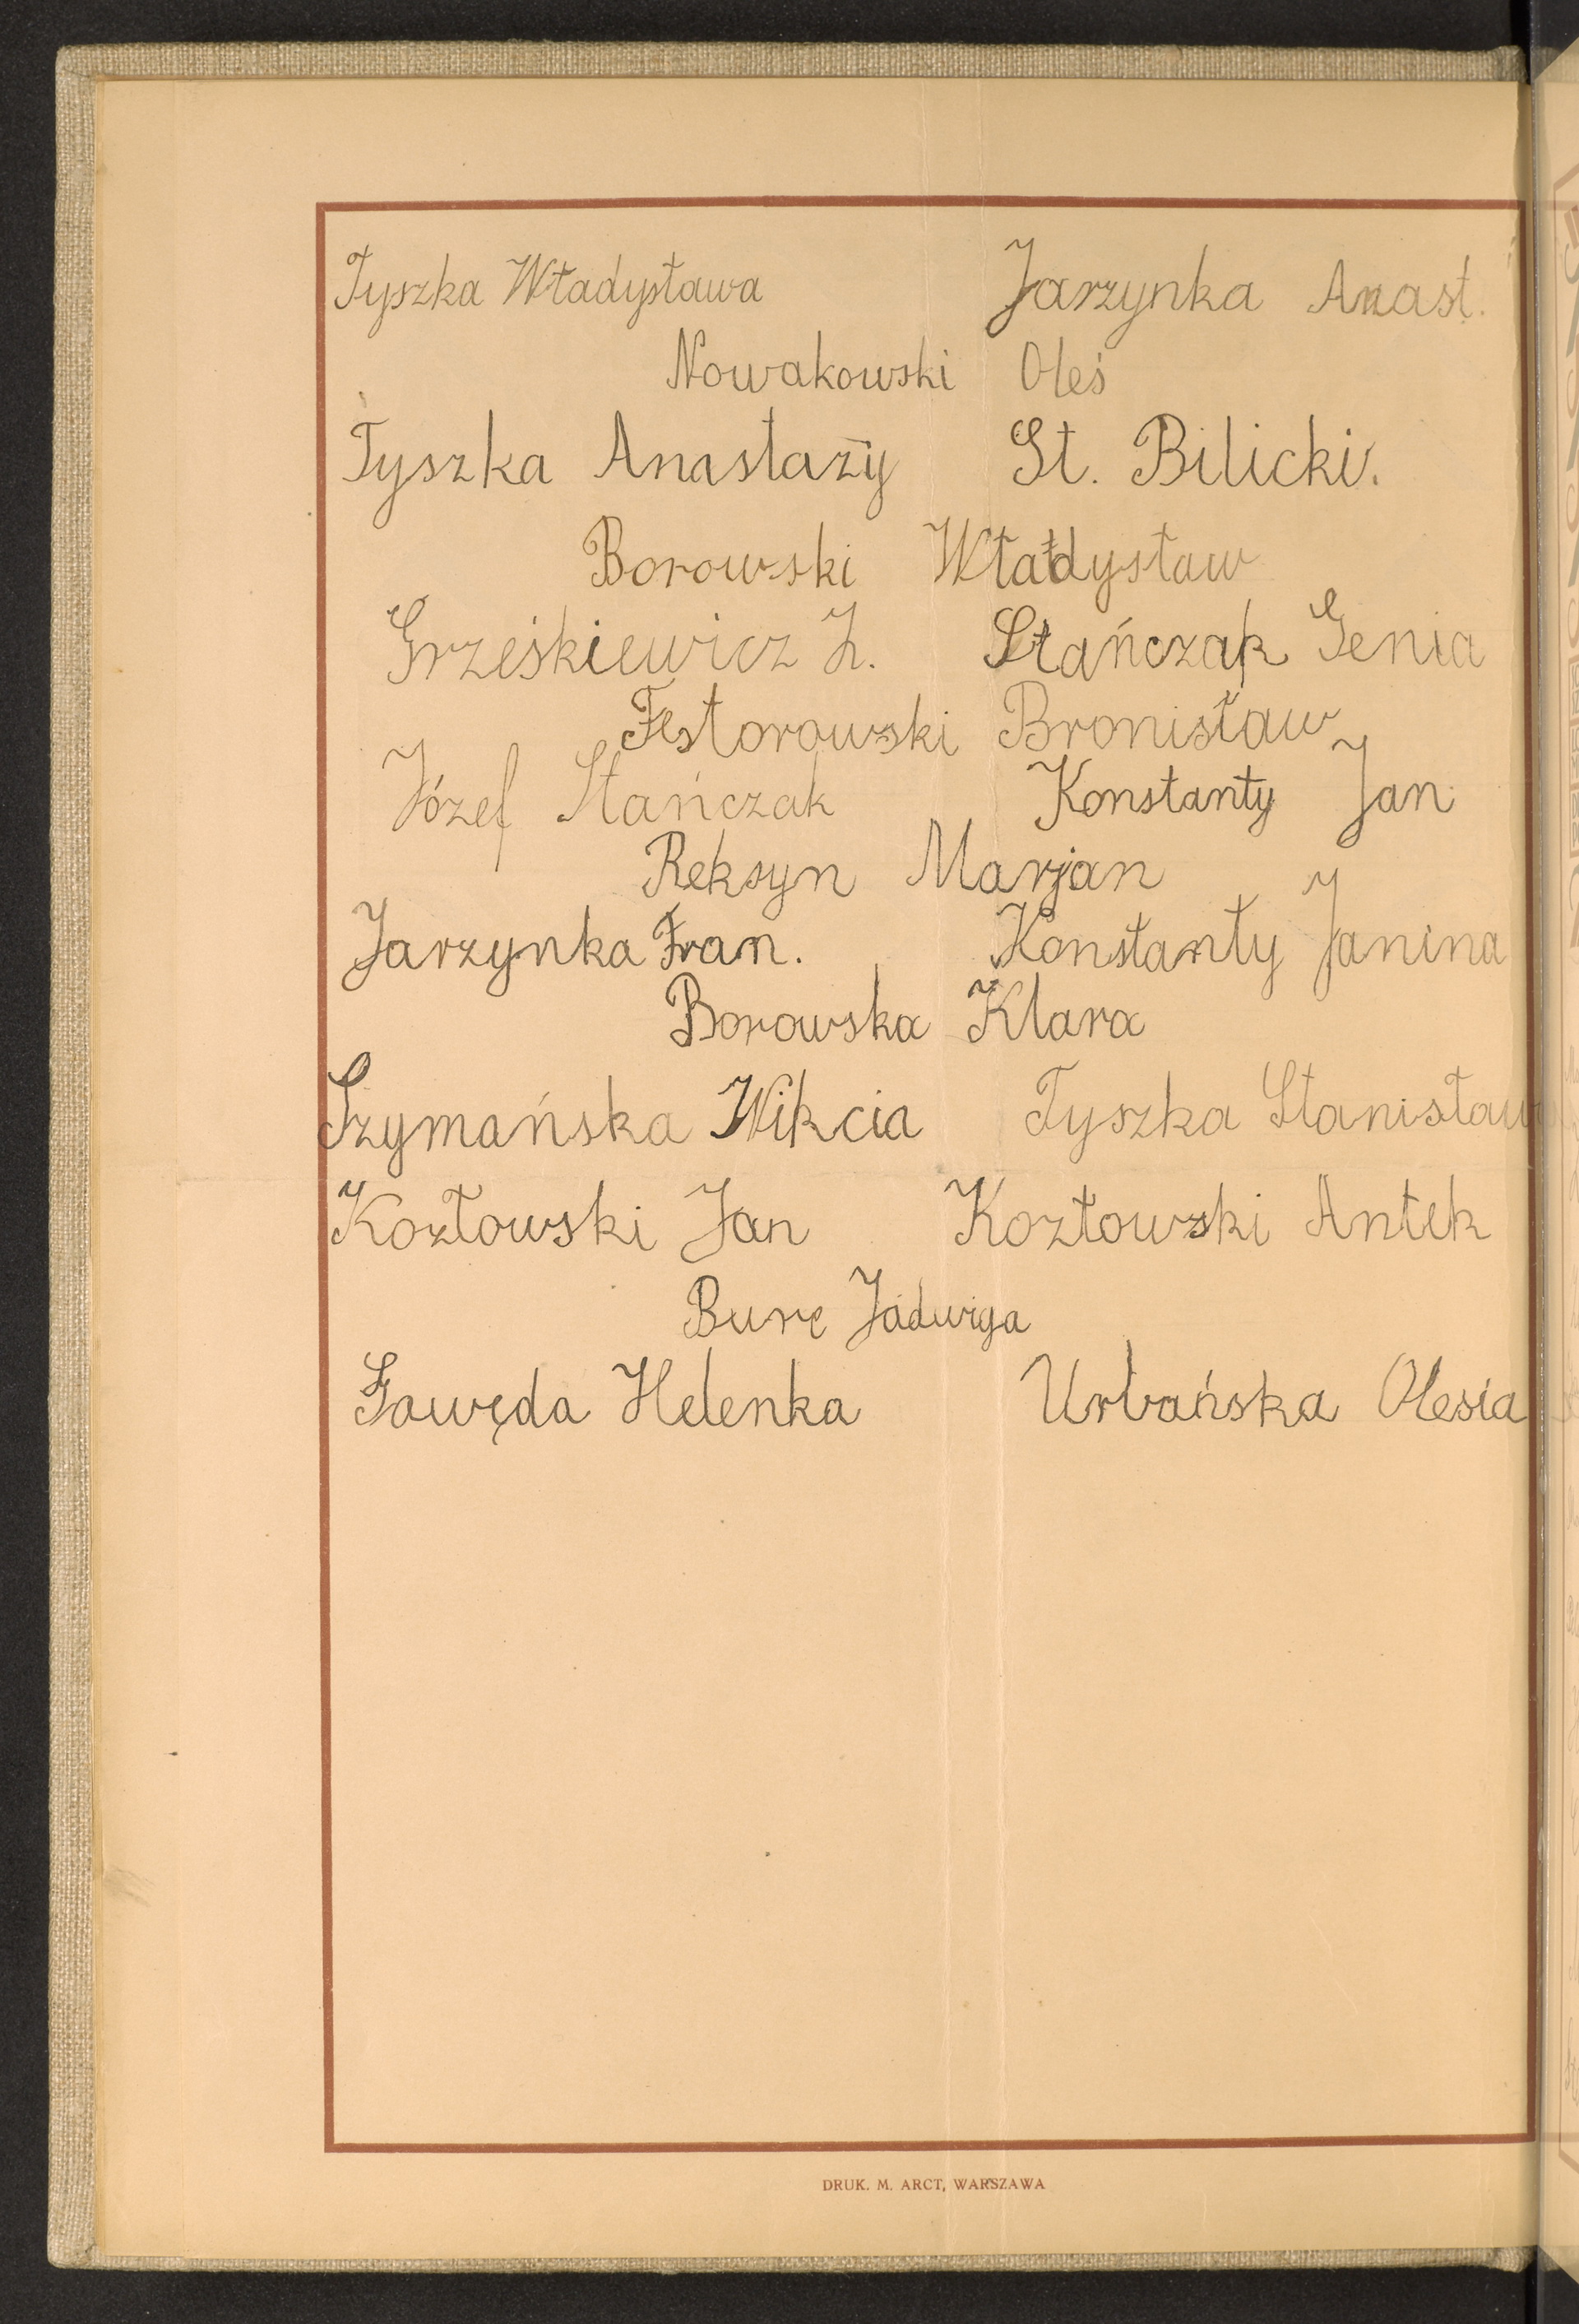 Tyszka Władysława Jarzynka Anast.
Nowakowski Oleś
Tyszka Anastazy St. Bilicki.
Borowski Władysław
Grześkiewicz Z. Stańczak Genia
Festorowski Bronisław
Józef Stańczak Konstanty Jan
Reksyn Marjan
Jarzynka Fran. Konstanty Janina
Borowska Klara
Szymańska Wikcia Tyszka Stanisław
Kozłowski Jan Kozłowski Antek
Burę Jadwiga
Gawęda Helenka Urbańska Olesia
DRUK. M. ARCT, WARSZAWA